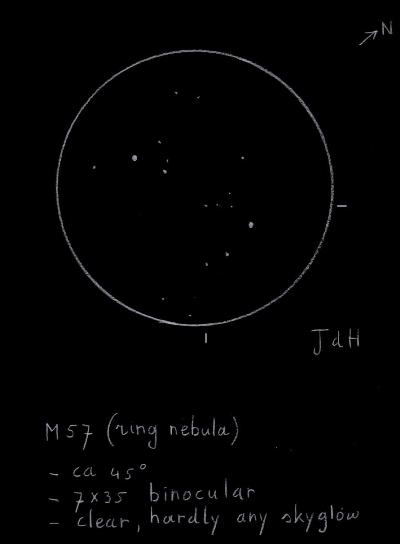 N
JdH
M57 (ring nebula)
- ca 45°
- 7x35 binocular
- clear, hardly any skyglow